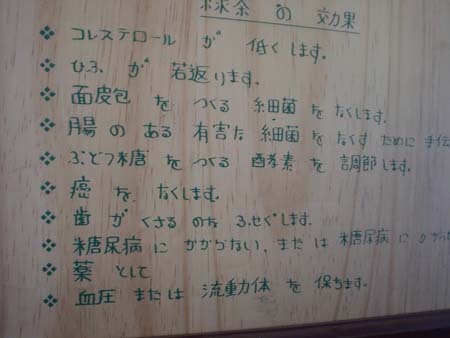 緑茶の効果
❖ コレステロール が 低くします。
❖ ひふ が 若返ります。
❖ 面皮包 を つくる 細菌 を なくします。
❖ 腸 の ある 有害な 細菌 を なくす ために 手伝
❖ ぶどう糖 を つくる 酵素 を 調節します。
❖ 癌 を なくします。
❖ 歯 が くさる のを ふせぐします。
❖ 糖尿病 に かからない, または 糖尿病 に かかっ
❖ 薬 として
❖ 血圧 または 流動体 を 保ちます。